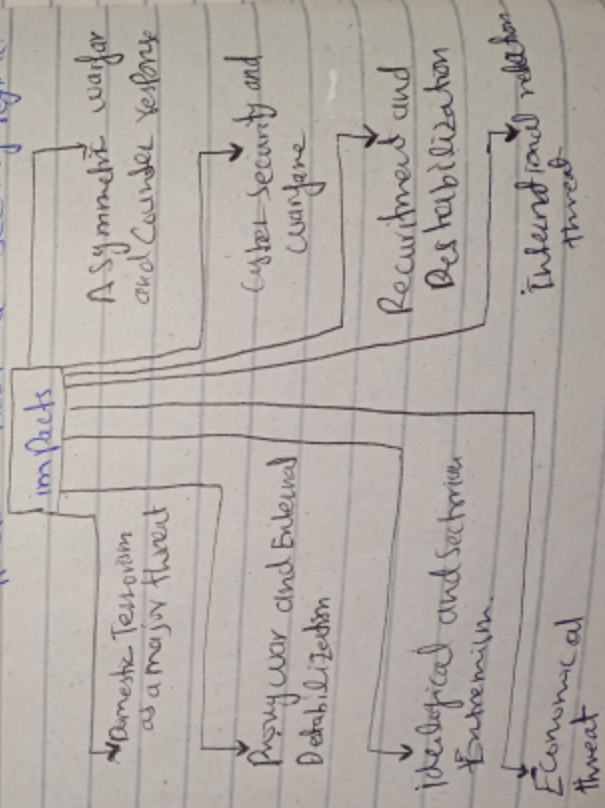 impacts
Domestic Terrorism
as a major threat
Proxy war and External
Detabilization
idealogical and Sectarian
Extremism.
Economical
threat
Asymmetric warfar
and Counter response
Cyber security and
warfare
Recuritment and
Destabilization
international relation
threat